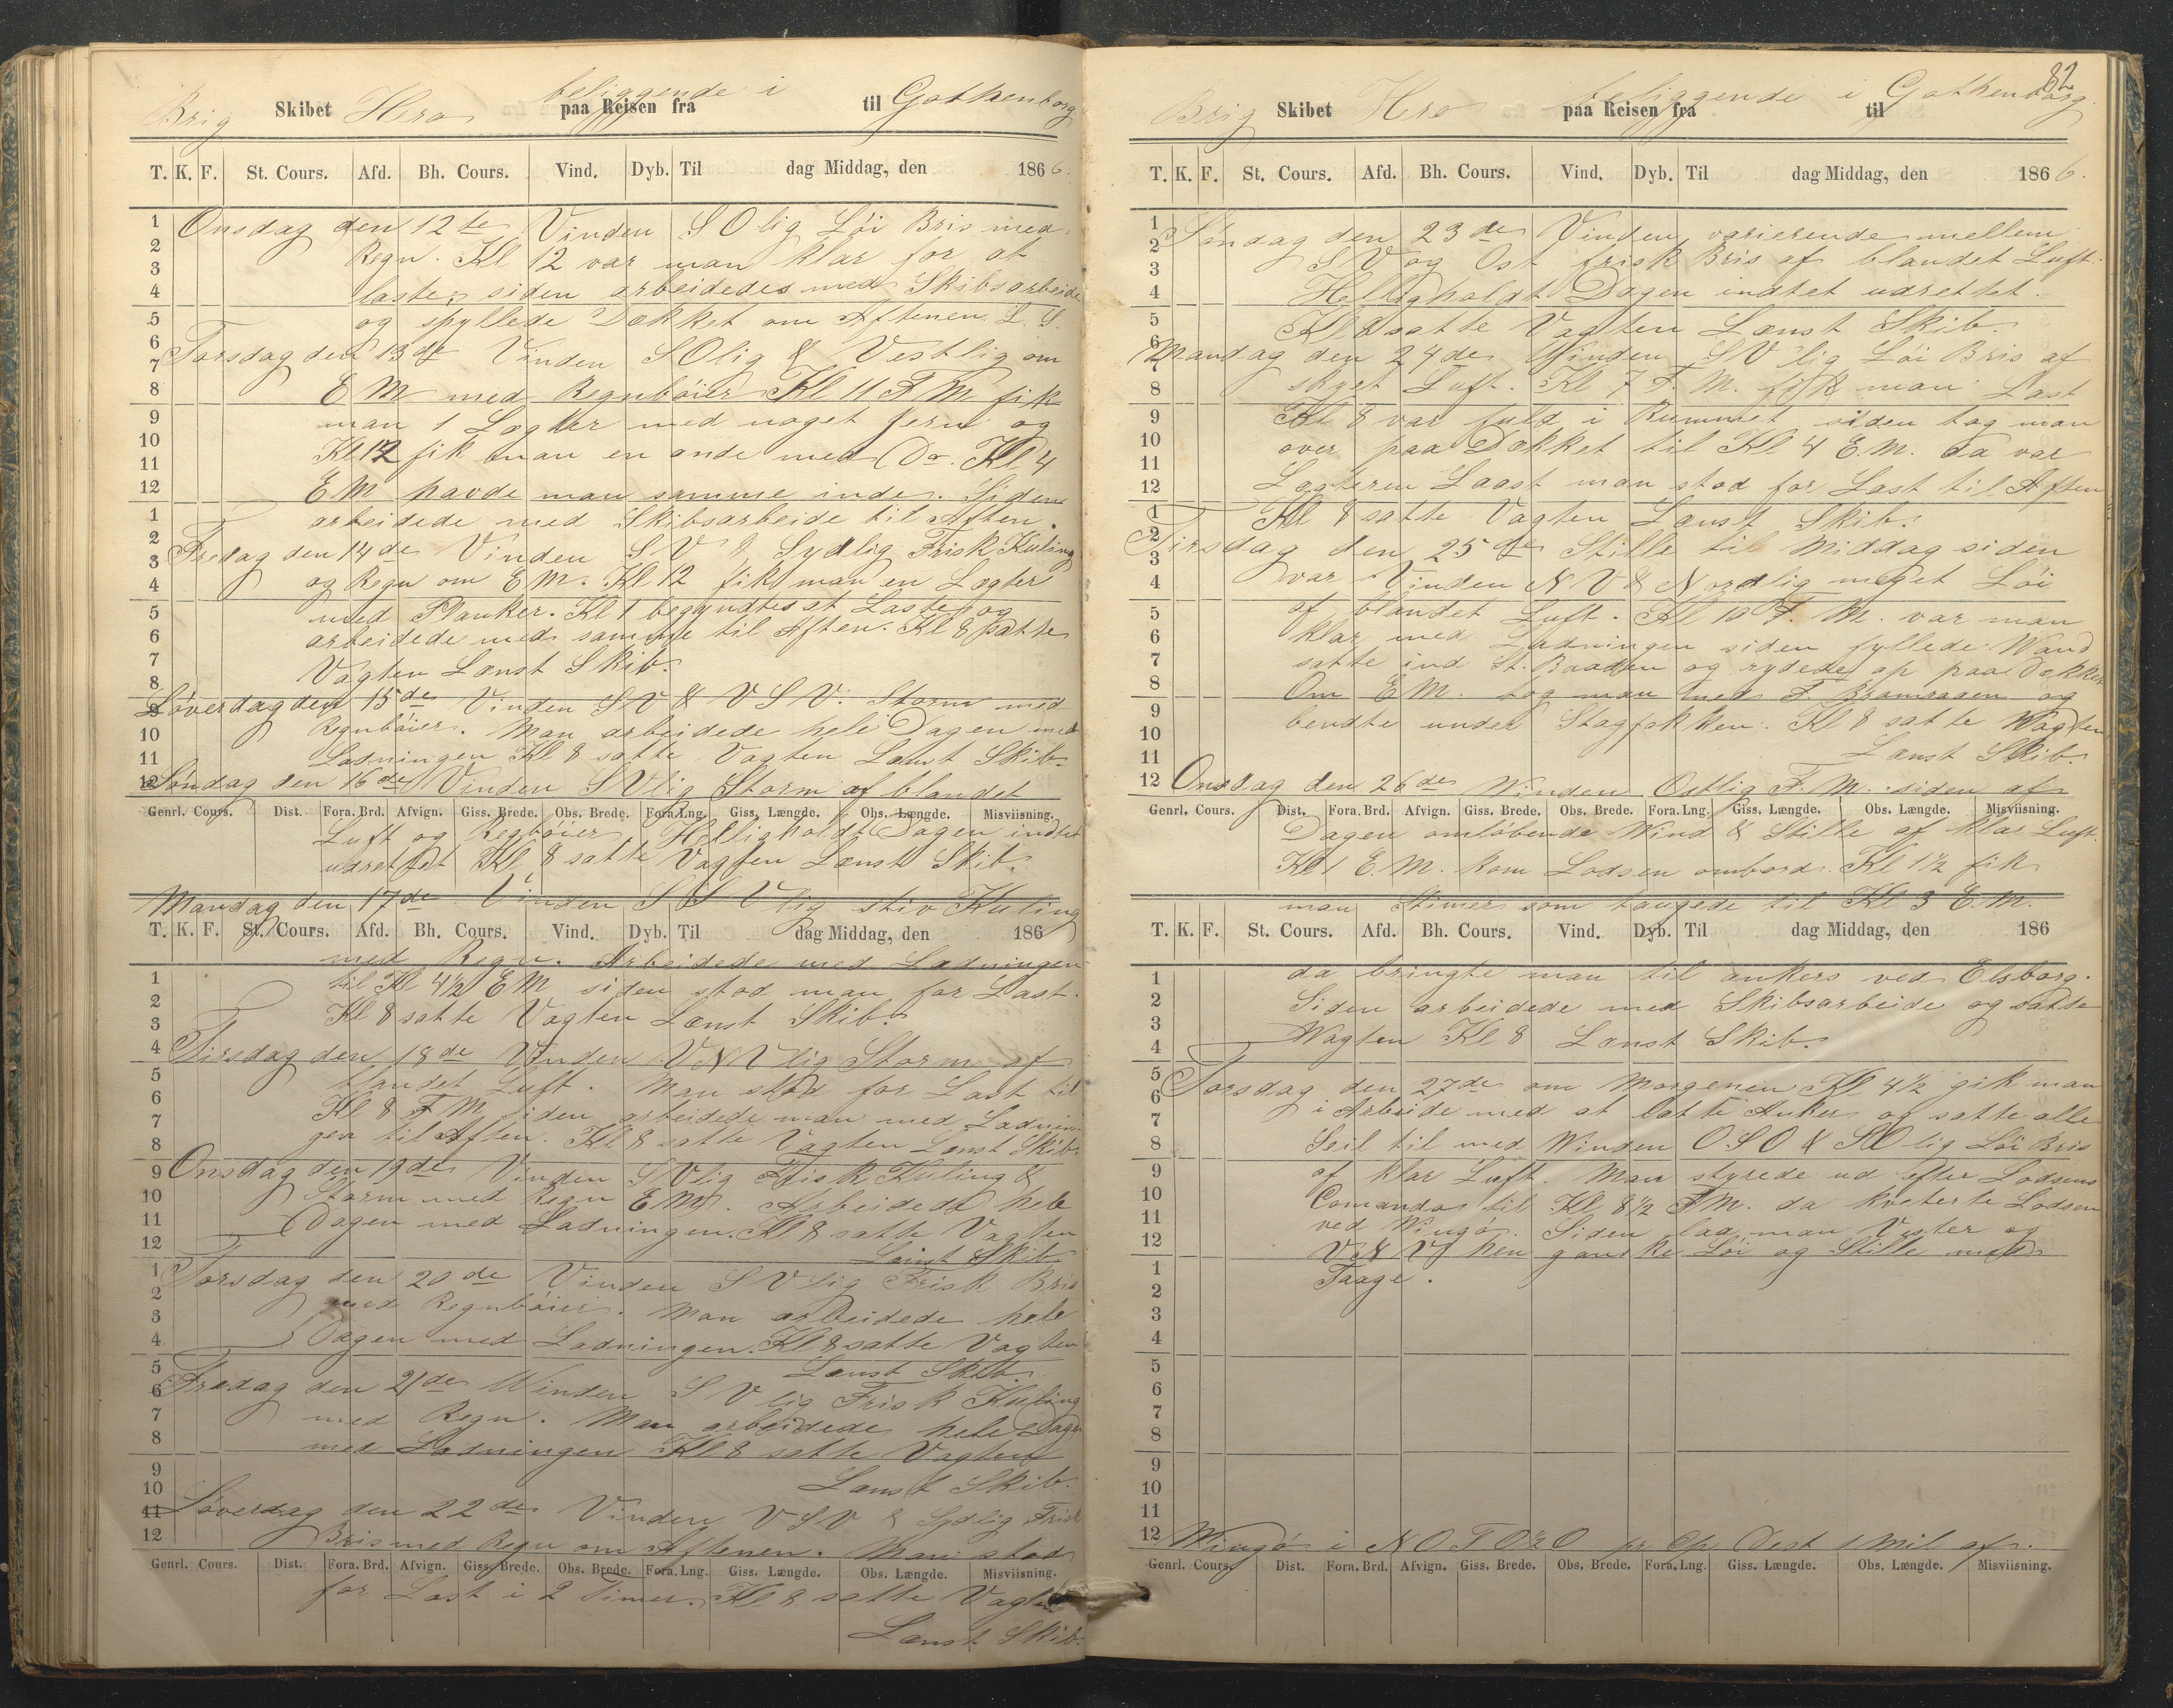 Brig Skibet Hero beliggende i paa Reisen fra til Gothenborg
T. K. F. St. Cours. Afd. Bh. Cours. Vind. Dyb. Til dag Middag, den 1866.
Onsdag den 12te Vinden SOlig Löi Bris med
Regn. Kl 12 var man klar for at
laste, siden arbeidedes med Skibsarbeide
og spyllede Dækket om Aftenen L. S.
Torsdag den 13de Vinden SOlig & Vestlig om
E M med Regnböier Kl 11 F M fik
man 1 Lægter med noget jern og
Kl 12 fik man en ande med Do. Kl 4
E M havde man samme inde. Siden
arbeidede med Skibsarbeide til Aften.
Fredag den 14de Vinden S V & Sydlig Frisk Kuling
og Regn om E M. Kl 12 fik man en Lægter
med Planker. Kl 1 begyndtes at Laste og
arbeidede med samme til Aften. Kl 8 satte
Vagten Lænst Skib.
Löverdag den 15de Vinden S V & V S V. Storm med
Regnböier. Man arbeidede hele Dagen med
Ladningen Kl 8 satte Vagten Lænst Skib.
Söndag den 16de Vinden S Vlig Storm af blandet
Genrl. Cours. Dist. Fora. Brd. Afvign. Giss. Brede. Obs. Brede. Fora. Lng. Giss. Længde. Obs. Længde. Misviisning.
Luft og Regböier. Helligholdt Dagen indtet
udrettet Kl 8 satte Vagten Lænst Skib.
Mandag den 17de Vinden S S V lig stiv Kuling
T. K. F. St. Cours. Afd. Bh. Cours. Vind. Dyb. Til dag Middag, den 186
med Regn. Arbeidede med Ladningen
til Kl 4½ E M siden stod man for Last.
Kl 8 satte Vagten Lænst Skib.
Tirsdag den 18de Vinden V N V lig Storm af
blandet Luft. Man stod for Last til
Kl 8 F M siden arbeidede man med Ladnin-
gen til Aften. Kl 8 satte Vagten Lænst Skib.
Onsdag den 19de Vinden S Vlig Frisk Kuling &
Storm med Regn E M. Arbeidede hele
Dagen med Ladningen. Kl 8 satte Vagten
Lænst Skib
Torsdag den 20de Vinden S V lig Frisk Bris
med Regnböier. Man arbeidede hele
Dagen med Ladningen. Kl 8 satte Vagten
Lænst Skib.
Fredag den 21de Winden S V lig Frisk Kuling
med Regn. Man arbeidede hele Dagen
med Ladningen Kl 8 satte Vagten
Lænst Skib.
Löverdag den 22de Vinden V S V & Sydlig Frisk
Bris med Regn om Aftenen. Man stod
Genrl. Cours. Dist. Fora. Brd. Afvign. Giss. Brede. Obs. Brede. Fora. Lng. Giss. Længde. Obs. Længde. Misviisning.
for Last i 2 Timer. Kl 8 satte Vagten
Lænst Skib.
82
Brig Skibet Hero paa Reisen fra beliggende i Gothenborg til
T. K. F. St. Cours. Afd. Bh. Cours. Vind. Dyb. Til dag Middag, den 1866.
Söndag den 23de Vinden varierende mellem
S V og Ost frisk Bris af blandet Luft.
Helligholdt Dagen indtet udrettet.
Kl 8 satte Vagten Lænst Skib.
Mandag den 24de Winden S V lig Löi Bris af
skyet Luft. Kl 7 F. M. fik man Last
Kl 8 var fuld i Rummet siden tog man
over paa Dækket til Kl 4 E.M. da var
Lægteren Laast man stod for Last til Aften
Kl 8 satte Vagten Lænst Skib.
Tirsdag den 25de Stille til Middag siden
var Vinden N V & Nordlig meget Löi
af blandet Luft. Kl 10 F. M. var man
klar med Ladningen siden fyllede Wand
satte ind St. Baaden og rydede op paa Dækket
Om E M. tog man ned F. Bramraaen og
bendte under Stagfokken. Kl 8 satte Wagten
Lænst Skib.
Onsdag den 26de Winden Ostlig F. M. siden af
Genrl. Cours. Dist. Fora. Brd. Afvign. Giss. Brede. Obs. Brede. Fora. Lng. Giss. Længde. Obs. Længde. Misviisning.
Dagen omlöbende Wind & Stille af klar Luft.
Kl 1 E. M. kom Lodsen ombord. Kl 1½ fik
man Stimer som taugede til Kl 3 E. M.
T. K. F. St. Cours. Afd. Bh. Cours. Vind. Dyb. Til dag Middag, den 186
da bringte man til ankers ved Elsborg.
Siden arbeidede med Skibsarbeide og satte
Wagten Kl 8 Lænst Skib.
Torsdag den 27de om Morgenen Kl 4½ gik man
i Arbeide med at latte Anker og satte alle
Seil til med Winden O S O & SO lig Löi Bris
af klar Luft. Man styrede ud efter Lodsens
Comando til Kl 8½ F M. da kviterte Lodsen
ved Wingö. Siden laa man Vester og
V N V hen ganske Löi og Stille med
Taage.
Wingö i N O T O ½ O pr. Cp. Dest 1 Mil af.
Genrl. Cours. Dist. Fora. Brd. Afvign. Giss. Brede. Obs. Brede. Fora. Lng. Giss. Længde. Obs. Længde. Misviisning.